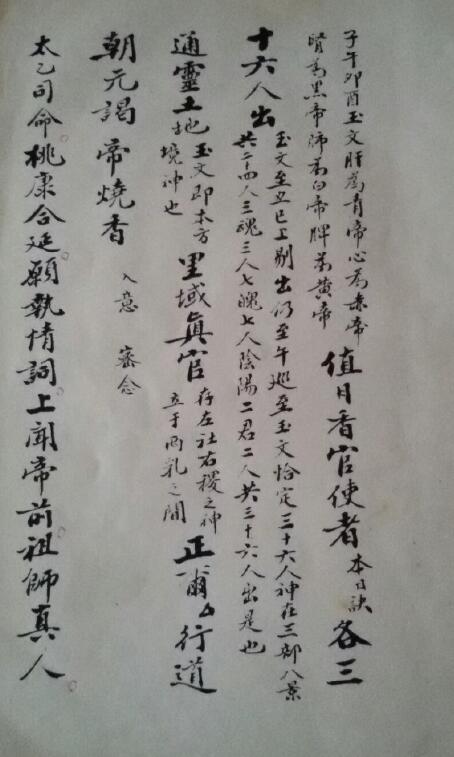 子午卯酉玉文肝為青帝心為赤帝
腎為黑帝肺為白帝脾為黃帝
值日香官使者 本日訣 各三
十六人出
玉文至丑巳上剔出仍至午巡至玉文恰定三十六人神在三部八景
共二十四人三魂三人七魄七人陰陽二君二人共三十六人出是也
通靈土地
玉文即本方
境神也
里域眞官
存左社右稷之神
立于兩乳之間
正爾厶行道
朝元謁帝燒香 入意 審念
太乙司命桃康合延願執情詞上聞帝前祖師真人